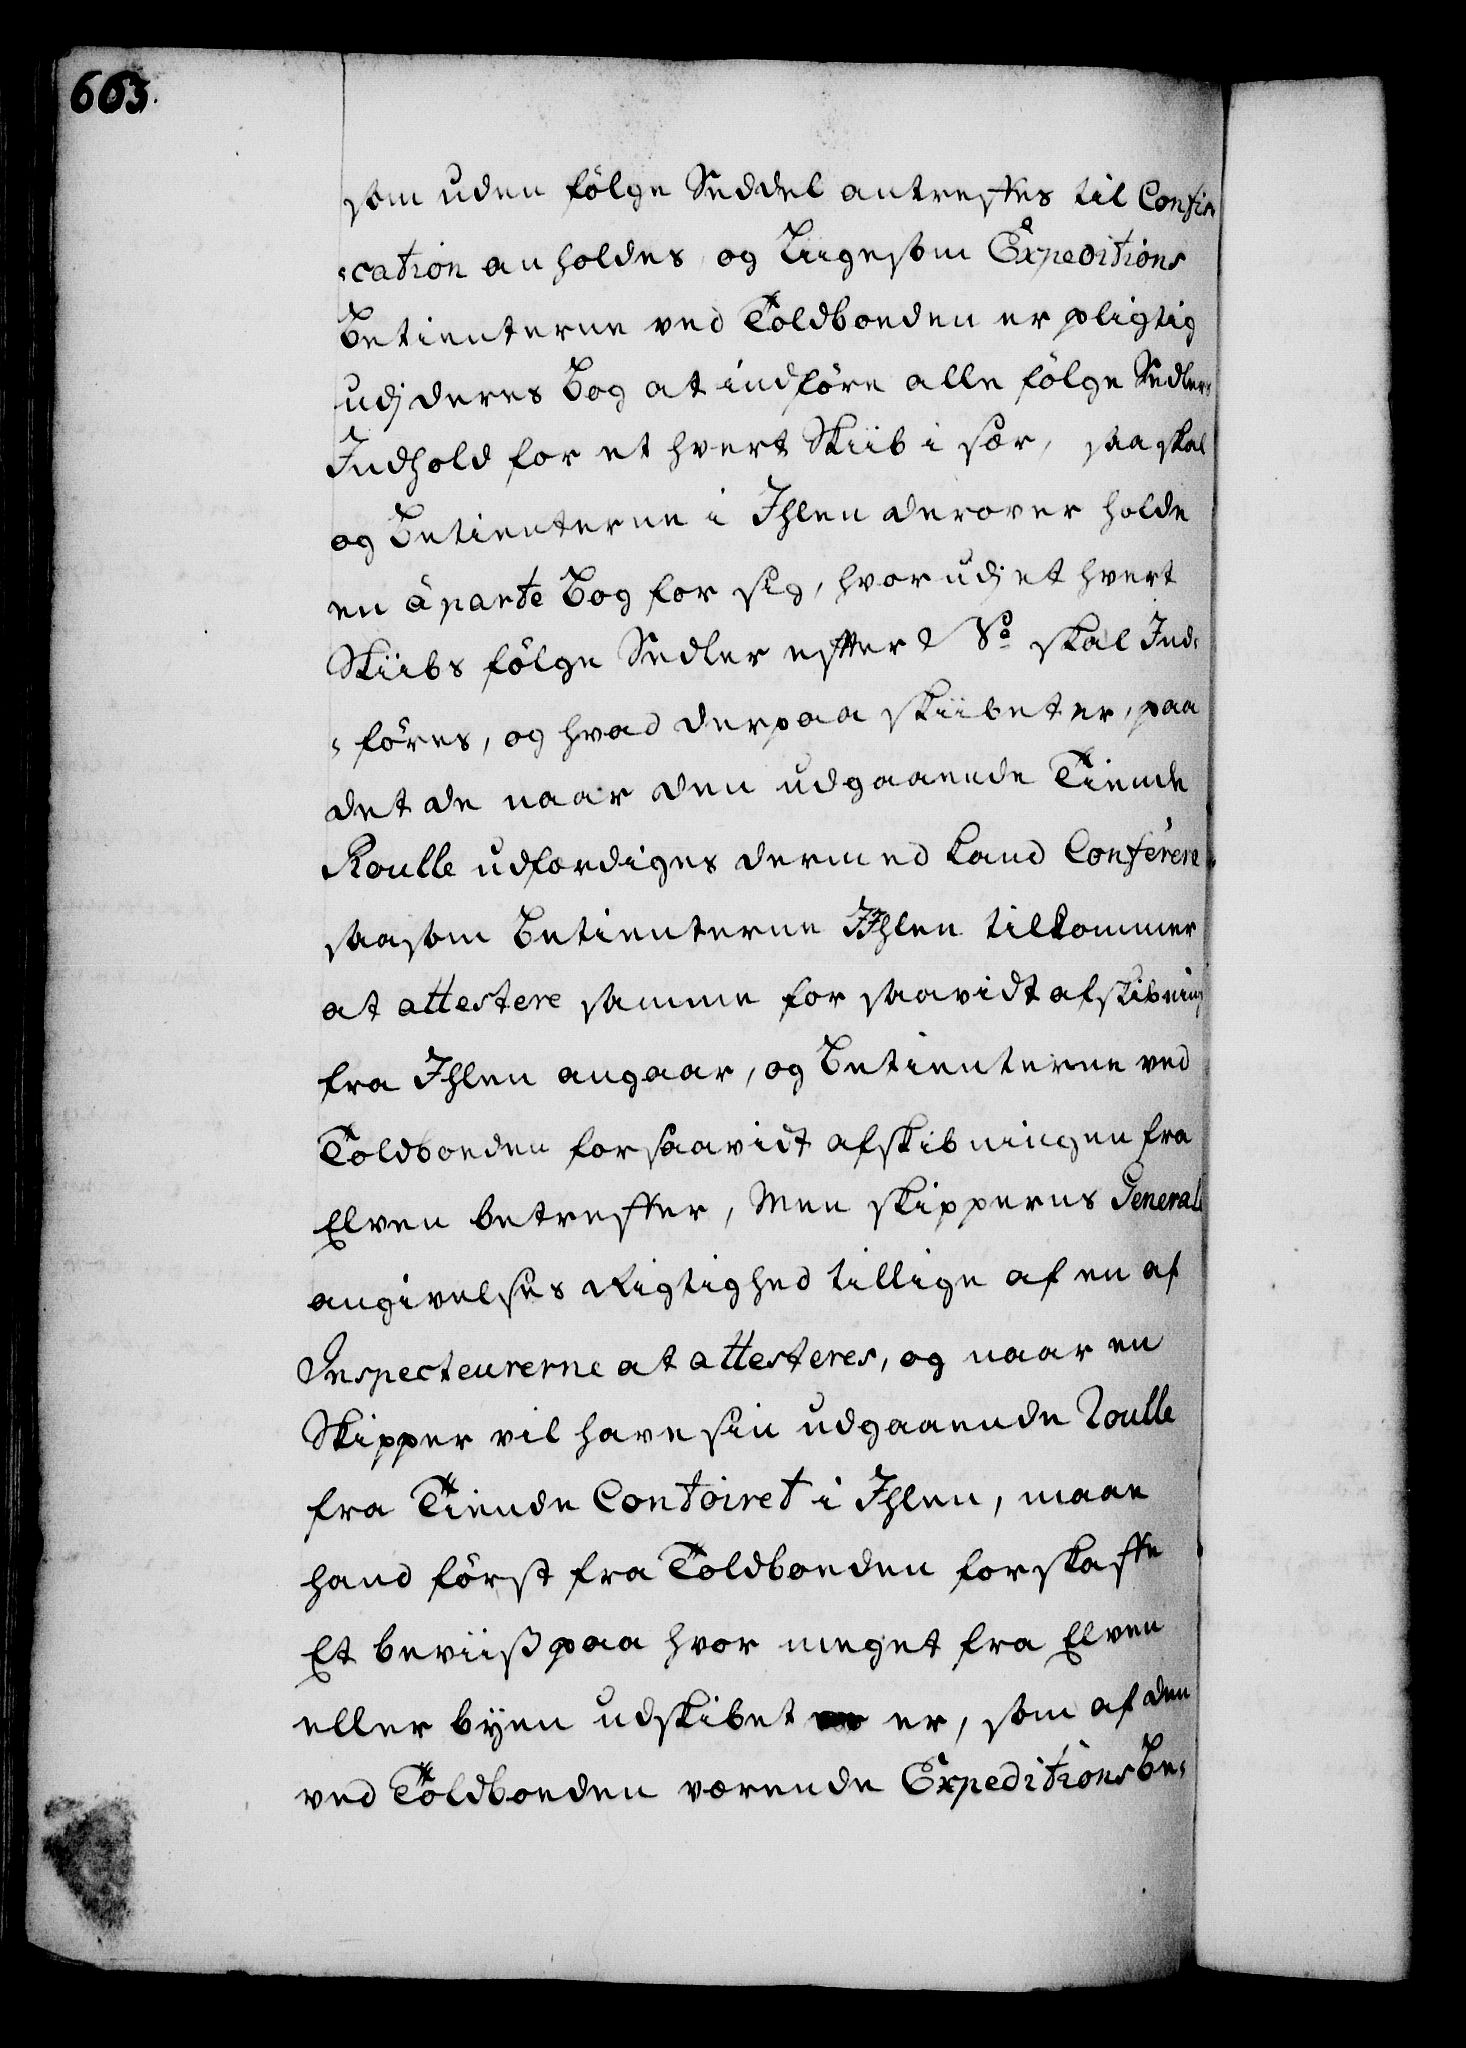 663.
som uden følge Seddel antreffes til Confis
=cation anholdes, og Liigesom Expeditions
Betienterne ved Toldboeden er pligtig
udj deres Bog at indføre alle følge Sedlers
Indhold for et hvert Skiib i sær, saa skal
og Betienterne i Ihlen derover holde
en àparte Bog for sig, hvorudj et hvert
Skiibs følge Sedler effter No skal Ind=
=føres, og hvad derpaa skiibet er, paa
det de naar den udgaaende Tiende
Roulle udfærdiges dermed kand Conferere
saasom Betienterne Ihlen tilkommer
at attestere samme for saavidt afskibning
fra Ihlen angaar, og Betienterne ved
Toldboeden forsaavidt afskibningen fra
Elven betreffer, Men skipperns General
angivelses Rigtighed tillige af en af
Inspecteurerne at attesteres, og naar en
Skipper vil have sin udgaaende Roulle
fra Tiende Contoiret i Ihlen, maae
hand først fra Toldboeden forskaffe
Et beviiß paa hvor meget fra Elven
eller byen udskibet er, som af den
ved Toldboeden værende Expeditions Be=